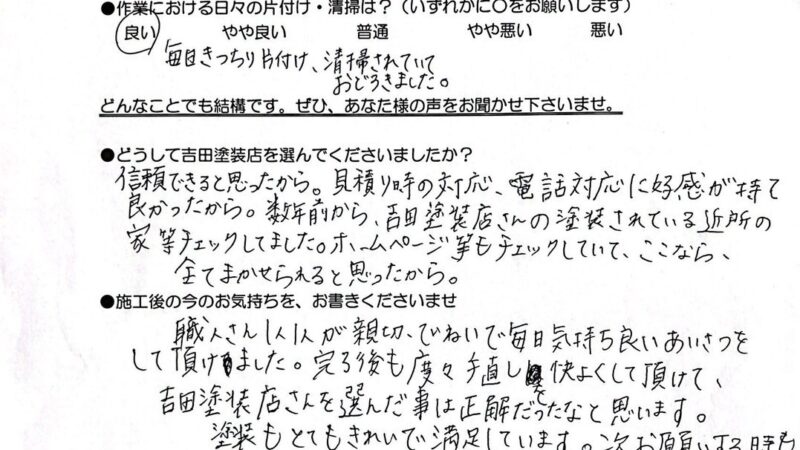 ●作業における日々の片付け・清掃は?(いずれかに○をお願いします)
良い やや良い 普通 やや悪い 悪い
毎日きっちり片付け、清掃されていて
おどろきました。
どんなことでも結構です。ぜひ、あなた様の声をお聞かせ下さいませ。
●どうして吉田塗装店を選んでくださいましたか?
信頼できると思ったから。見積り時の対応、電話対応に好感が持て
良かったから。数年前から、吉田塗装店さんの塗装されている近所の
家等チェックしてました。ホームページ等もチェックしていて、ここなら、
全てまかせられると思ったから。
●施工後の今のお気持ちを、お書きくださいませ
職人さん1人1人が親切、でいねいで毎日気持ち良いあいさつを
して頂けました。完了後も度々手直し快よくして頂けて、
吉田塗装店さんを選んだ事は正解だったなと思います。
塗装もとてもきれいで満足しています。次お願いする時も